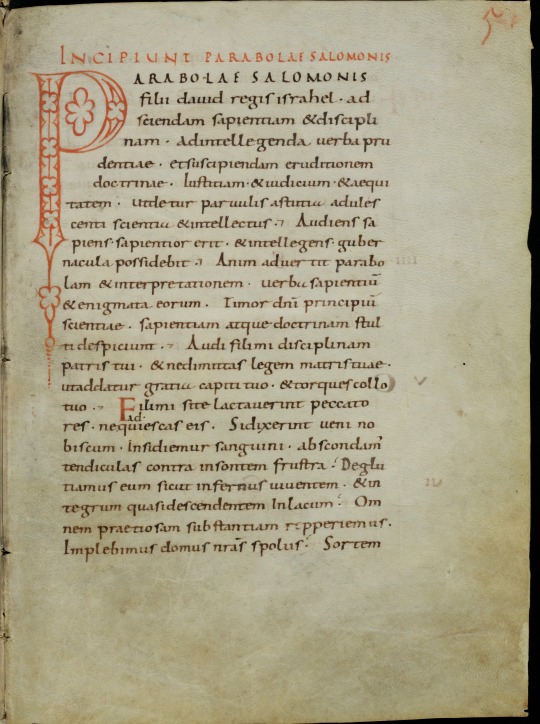 INCIPIUNT PARABOLAE SALOMONIS
PARABOLAE SALOMONIS
filii david regis israhel · ad
sciendam sapientiam & discipli
nam · ad intellegenda verba pru
dentiae · et suscipiendam eruditionem
doctrinae · Iustitiam · & iudicium · & aequi
tatem · ut detur parvulis astutia adules
centi scientia & intellectus · Audiens sa
piens · sapientior erit · & intellegens · guber
nacula possidebit · Animadvertit parabo
lam & interpretationem · verba sapientiū
& enigmata eorum · Timor dn̄i principiū
scientiae · sapientiam atque doctrinam stul
ti despiciunt · Audi fili mi disciplinam
patris tui · & ne dimittas legem matris tuae ·
ut addatur gratia capiti tuo · & torques collo
tuo · Fili mi si te lactaverint peccato
res · ne adquiescas eis · Si dixerint veni no
biscum · Insidiemur sanguini · abscondam'
tendiculas contra insontem frustra · Deglu
tiamus eum sicut infernus viventem · & in
tegrum quasi descendentem In lacum · Om
nem praetiosam substantiam repperiemus ·
Implebimus domus nr̄as spoliis · Sortem